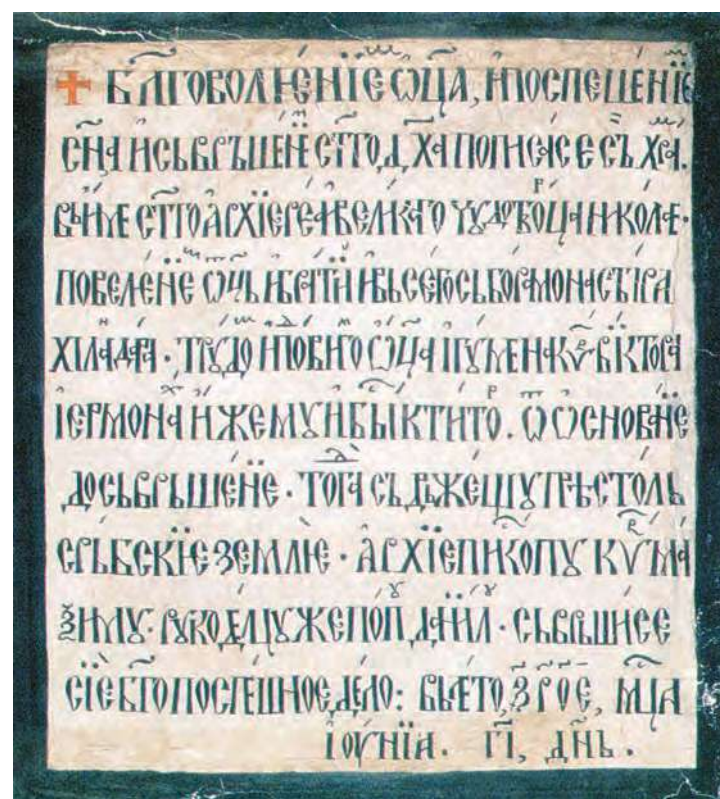 ✝ Бл҃говолѥнїе ѡц҃а, и поспешенїе
сн҃а и съврьшенїе ст҃го дх҃а пописа се съ хра.
въ име ст҃го архїереа великаго чꙋдотворца николае.
повеленїе ѡц҃ь и братїи и вьсего сьбора монастіра
хіландара. трꙋдо и подвиго ѡц҃а игꙋмена кѵ҃ віктора
їермонаха иже мꙋ и бы ктиторь. ѿ ѡснованїе
до сьврьшенїе. тогда съдрьжещꙋ прѣстоль
срьбскїе землѥ. архїепископꙋ кѵр маѯимꙋ
ѯимꙋ. рꙋкоделцꙋ же поп данил. сьврьши се
сїе бг҃опоспешное дело: вь лето, ҂зрое, мц҃а
іоунїа. гі, дн҃ь.